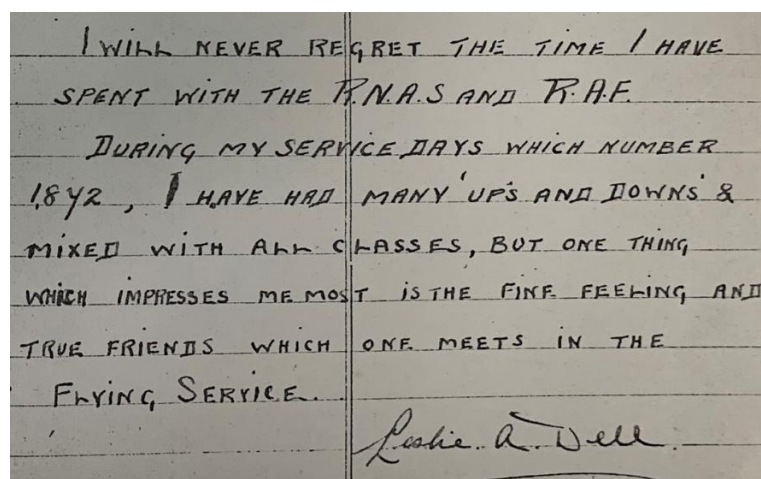 I WILL NEVER REGRET THE TIME I HAVE
SPENT WITH THE R.N.A.S AND R.A.F.
DURING MY SERVICE DAYS WHICH NUMBER
1842, I HAVE HAD MANY 'UP'S AND DOWNS' &
MIXED WITH ALL CLASSES, BUT ONE THING
WHICH IMPRESSES ME MOST IS THE FINE FEELING AND
TRUE FRIENDS WHICH ONE MEETS IN THE
FLYING SERVICE.
Leslie. A. Dell.